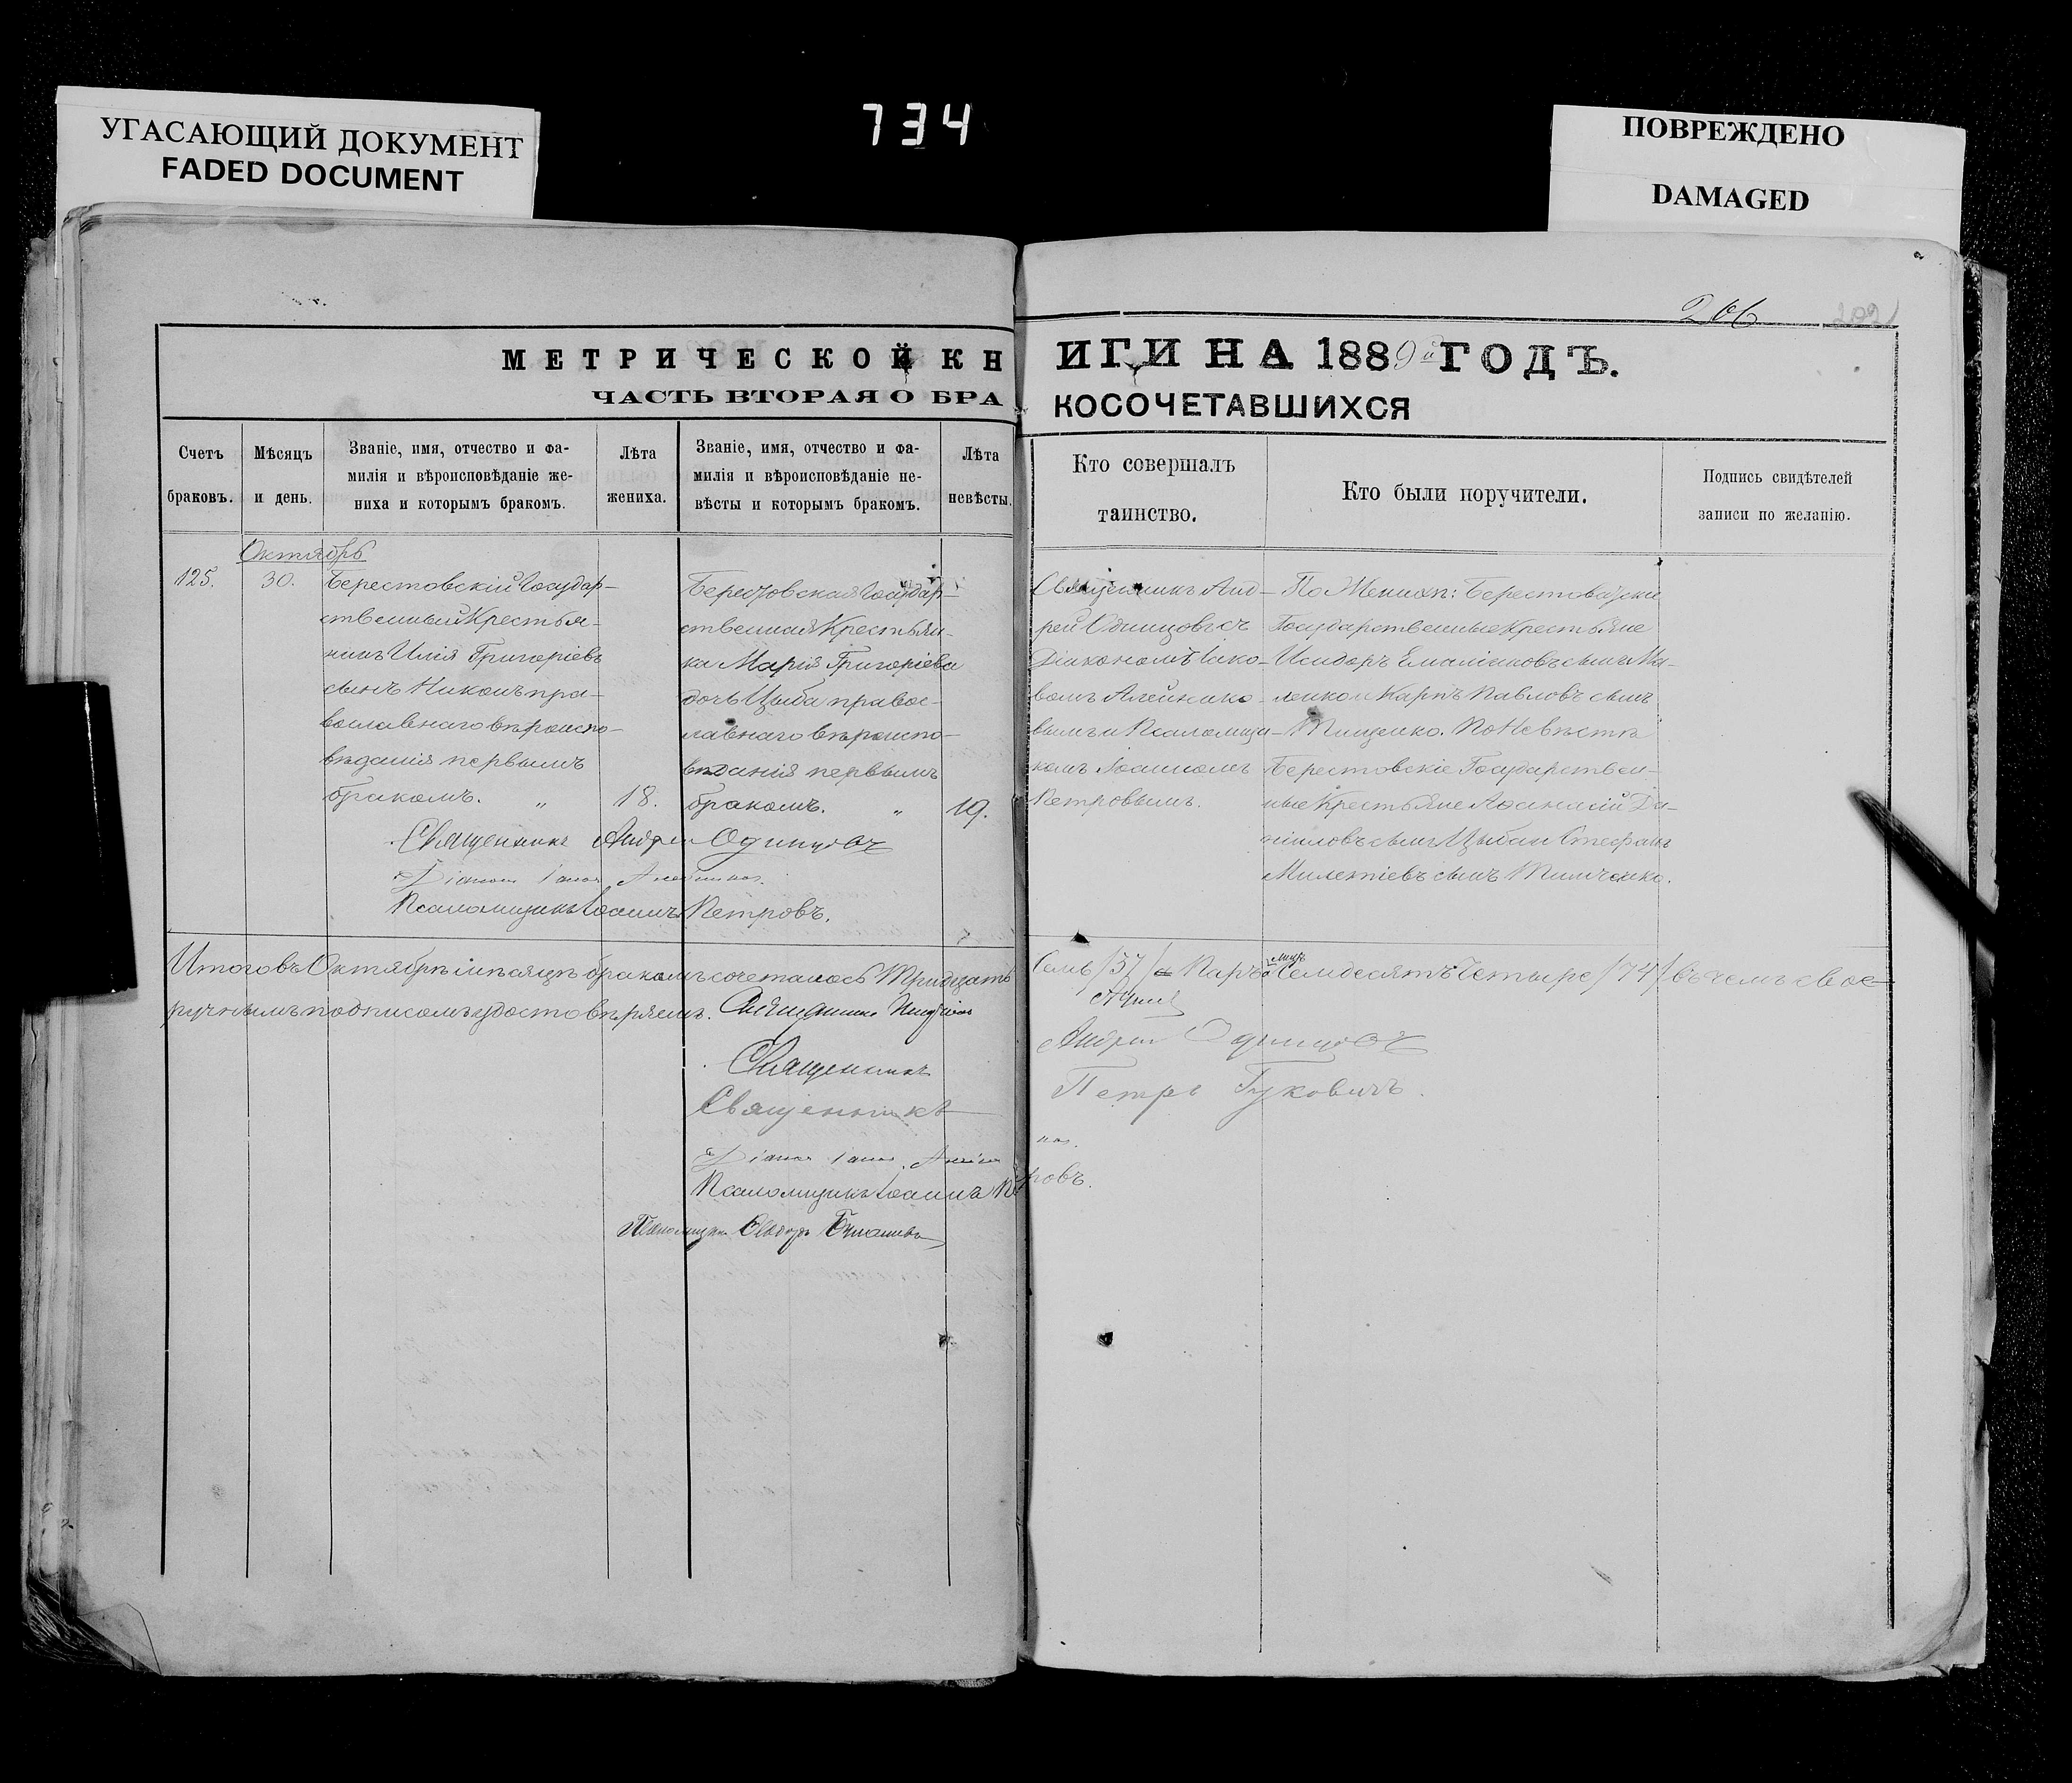 УГАСАЮЩИЙ ДОКУМЕНТ
FADED DOCUMENT
734
ПОВРЕЖДЕНО
DAMAGED
206
202
МЕТРИЧЕСКОЙ КНИГИ НА 1889й ГОДЪ.
ЧАСТЬ ВТОРАЯ О БРАКОСОЧЕТАВШИХСЯ
Счетъ
браковъ.
Мѣсяцъ
и день.
Званіе, имя, отчество и фа-
милія и вѣроисповѣданіе же-
ниха и которымъ бракомъ.
Лѣта
жениха.
Званіе, имя, отчество и фа-
милія и вѣроисповѣданіе не-
вѣсты и которымъ бракомъ.
Лѣта
невѣсты.
Кто совершалъ
таинство.
Кто были поручители.
Подпись свидѣтелей
записи по желанію.
Октябрь
125.
30.
Берестовскій Государ-
ственный Крестья-
нинъ Илія Григоріевъ
сынъ Никонъ пра-
вославнаго вѣроиспо-
вѣданія первымъ
бракомъ. „
18.
Берестовская Государ-
ственная Крестьян-
ка Марія Григоріева
дочь Цыба правос-
лавнаго вѣроиспо-
вѣданія первымъ
бракомъ. „
19.
Священникъ Анд-
рей Одинцовъ съ
Діакономъ Іако-
вомъ Алейнико-
вымъ и Псаломщи-
комъ Іоанномъ
Петровымъ.
По Женихѣ: Берестовскіе
Государственные Крестьяне
Исидоръ сынъ Ма-
ленко и Карпъ Павловъ сынъ
Тищенко. По Невѣстѣ
Берестовскіе Государствен-
ные Крестьяне Афанасій Да-
ніиловъ сынъ Цыба и Стефанъ
Милетіевъ сынъ Тимченко.
Священникъ Андрей Одинцовъ
Діаконъ Іаковъ Алейников.
Псаломщикъ Іоаннъ Петровъ.
Итого въ Октябрѣ мѣсяцѣ бракомъ сочеталось Тридцать Семь /37/ Паръ Семдесятъ Четыре /74/ въ чемъ свое-
ручнымъ подписомъ удостовѣряемъ. Священникъ
Священникъ Андрей Одинцовъ
Священникъ Петръ Гуковичъ.
Діаконъ Іаковъ Алейников.
Псаломщикъ Іоаннъ Петровъ.
Псаломщикъ